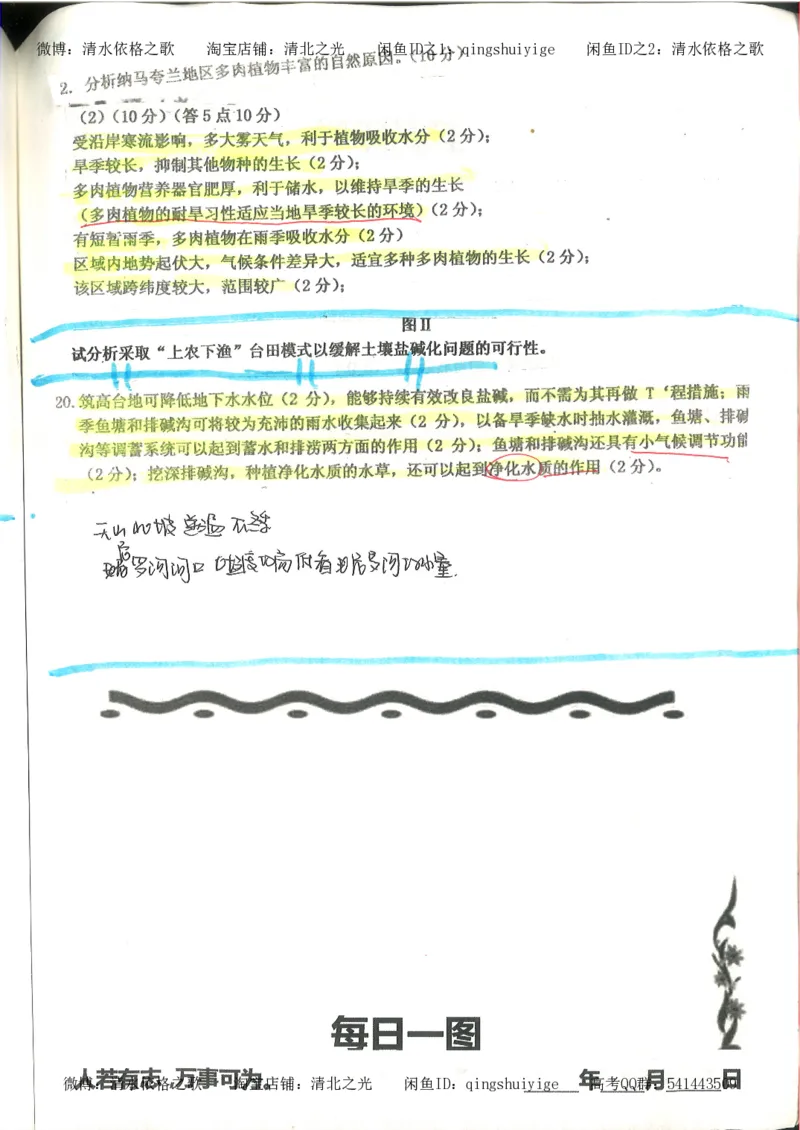 微博：清水依格之歌 淘宝店铺：清北之光 闲鱼ID之1：qingshuiyige 闲鱼ID之2：清水依格之歌
2. 分析纳马夸兰地区多肉植物丰富的自然原因。(10分)
(2)(10分)(答5点10分)
受沿岸寒流影响，多大雾天气，利于植物吸收水分(2分)；
旱季较长，抑制其他物种的生长(2分)；
多肉植物营养器官肥厚，利于储水，以维持旱季的生长
(多肉植物的耐旱习性适应当地旱季较长的环境)(2分)；
有短暂雨季，多肉植物在雨季吸收水分(2分)
区域内地势起伏大，气候条件差异大，适宜多种多肉植物的生长(2分)；
该区域跨纬度较大，范围较广(2分)；
图Ⅱ
试分析采取“上农下渔”台田模式以缓解土壤盐碱化问题的可行性。
20.筑高台地可降低地下水水位(2分)，能够持续有效改良盐碱，而不需为其再做 T‘程措施；雨
季鱼塘和排碱沟可将较为充沛的雨水收集起来(2分)，以备旱季缺水时抽水灌溉，鱼塘、排碱
沟等调蓄系统可以起到蓄水和排涝两方面的作用(2分)；鱼塘和排碱沟还具有小气候调节功能
(2分)；挖深排碱沟，种植净化水质的水草，还可以起到净化水质的作用(2分)。
天山 坡
罗河河口 高
每日一图
人若有志 万事可为。 年 月 日
微博：清水依格之歌 淘宝店铺：清北之光 闲鱼ID：qingshuiyige 高考QQ群：541443509